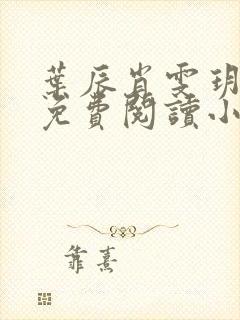 葉辰肖雯玥
免費閱讀小
靠熹